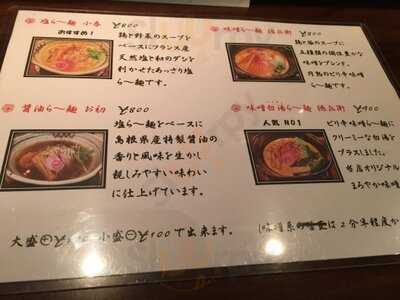 塩ら〜麺 小春 ¥800
おすすめ!
鶏と野菜のスープを
ベースにフランス産
天然塩と和のダシを
利かせたあっさり塩
ら〜麺です。
味噌ら〜麺
鶏と豚のスープに
味噌をブレンド。
ピリ辛味噌
ら〜麺です。
醤油ら〜麺 お初 ¥800
塩ら〜麺をベースに
島根県産特製醤油の
香りと風味を生かし
親しみやすい味わい
に仕上げています。
味噌白湯ら〜麺
人気 NO1
ピリ辛味噌ら〜麺に
クリーミーな白湯を
プラスしました。
当店オリジナル
まろやか味噌
大盛⊕ 小盛⊖¥100で出来ます。
は2分程度か